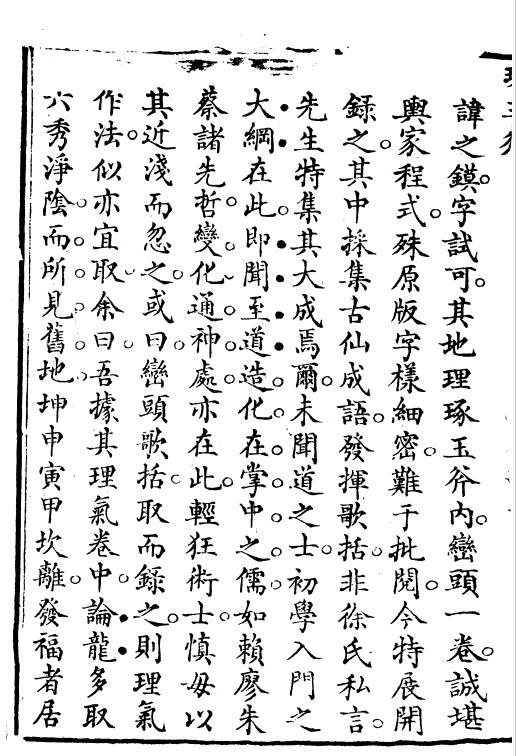 諱之鏌字試可其地理琢玉斧內巒頭一卷誠堪
輿家程式殊原版字樣細密難于批閱今特展開
錄之其中採集古仙成語發揮歌括非徐氏私言
先生特集其大成焉爾未聞道之士初學入門之
大綱在此即聞至道造化在掌中之儒如賴廖朱
蔡諸先哲變化通神處亦在此輕狂術士慎毋以
其近淺而忽之或曰巒頭歌括取而錄之則理氣
作法似亦宜取余曰吾據其理氣卷中論龍多取
六秀淨陰而所見舊地坤申寅甲坎離發福者居